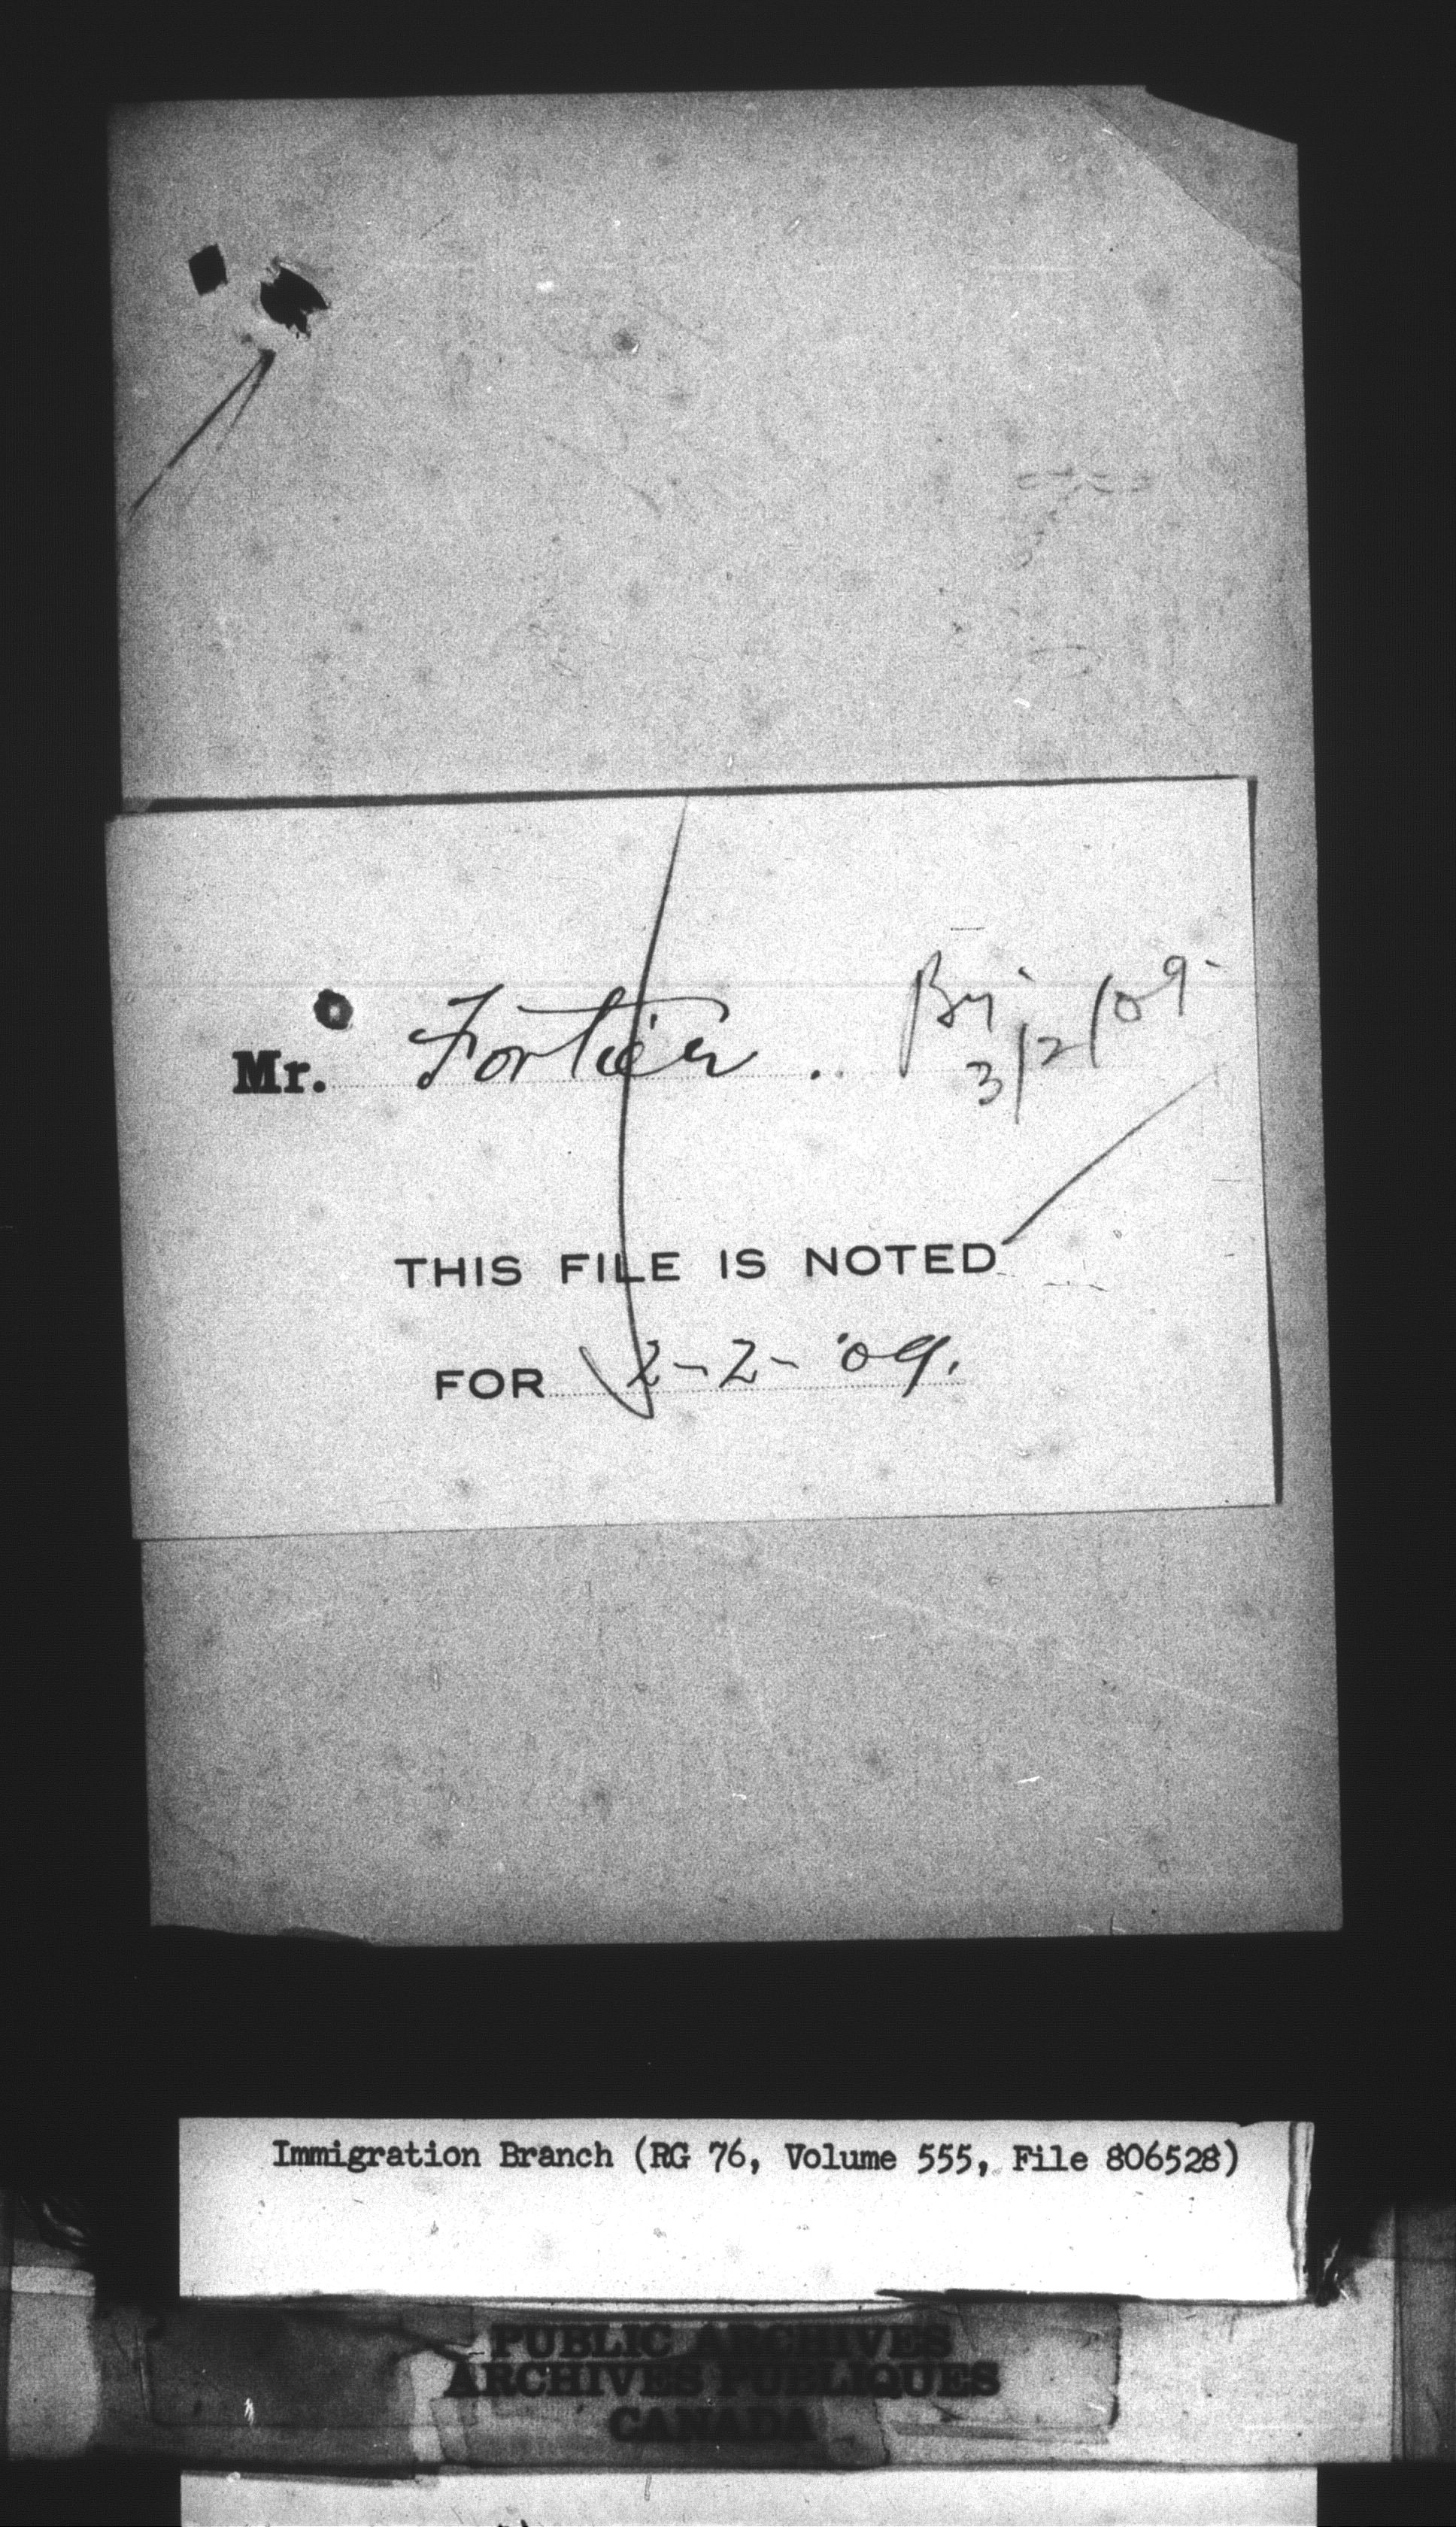 Mr. Fortier. 3/2/09.
THIS FILE IS NOTED
FOR 2-2-'09.
Immigration Branch (RG 76, Volume 555, File 806528)
PUBLIC ARCHIVES
ARCHIVES PUBLIQUES
CANADA